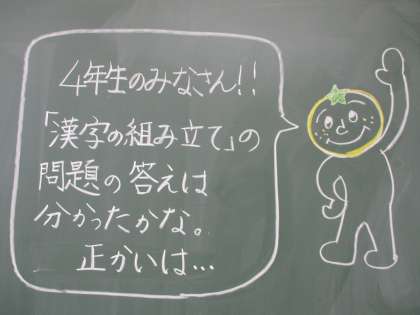 4年生のみなさん!!
「漢字の組み立て」の
問題の答えは
分かったかな。
正かいは…